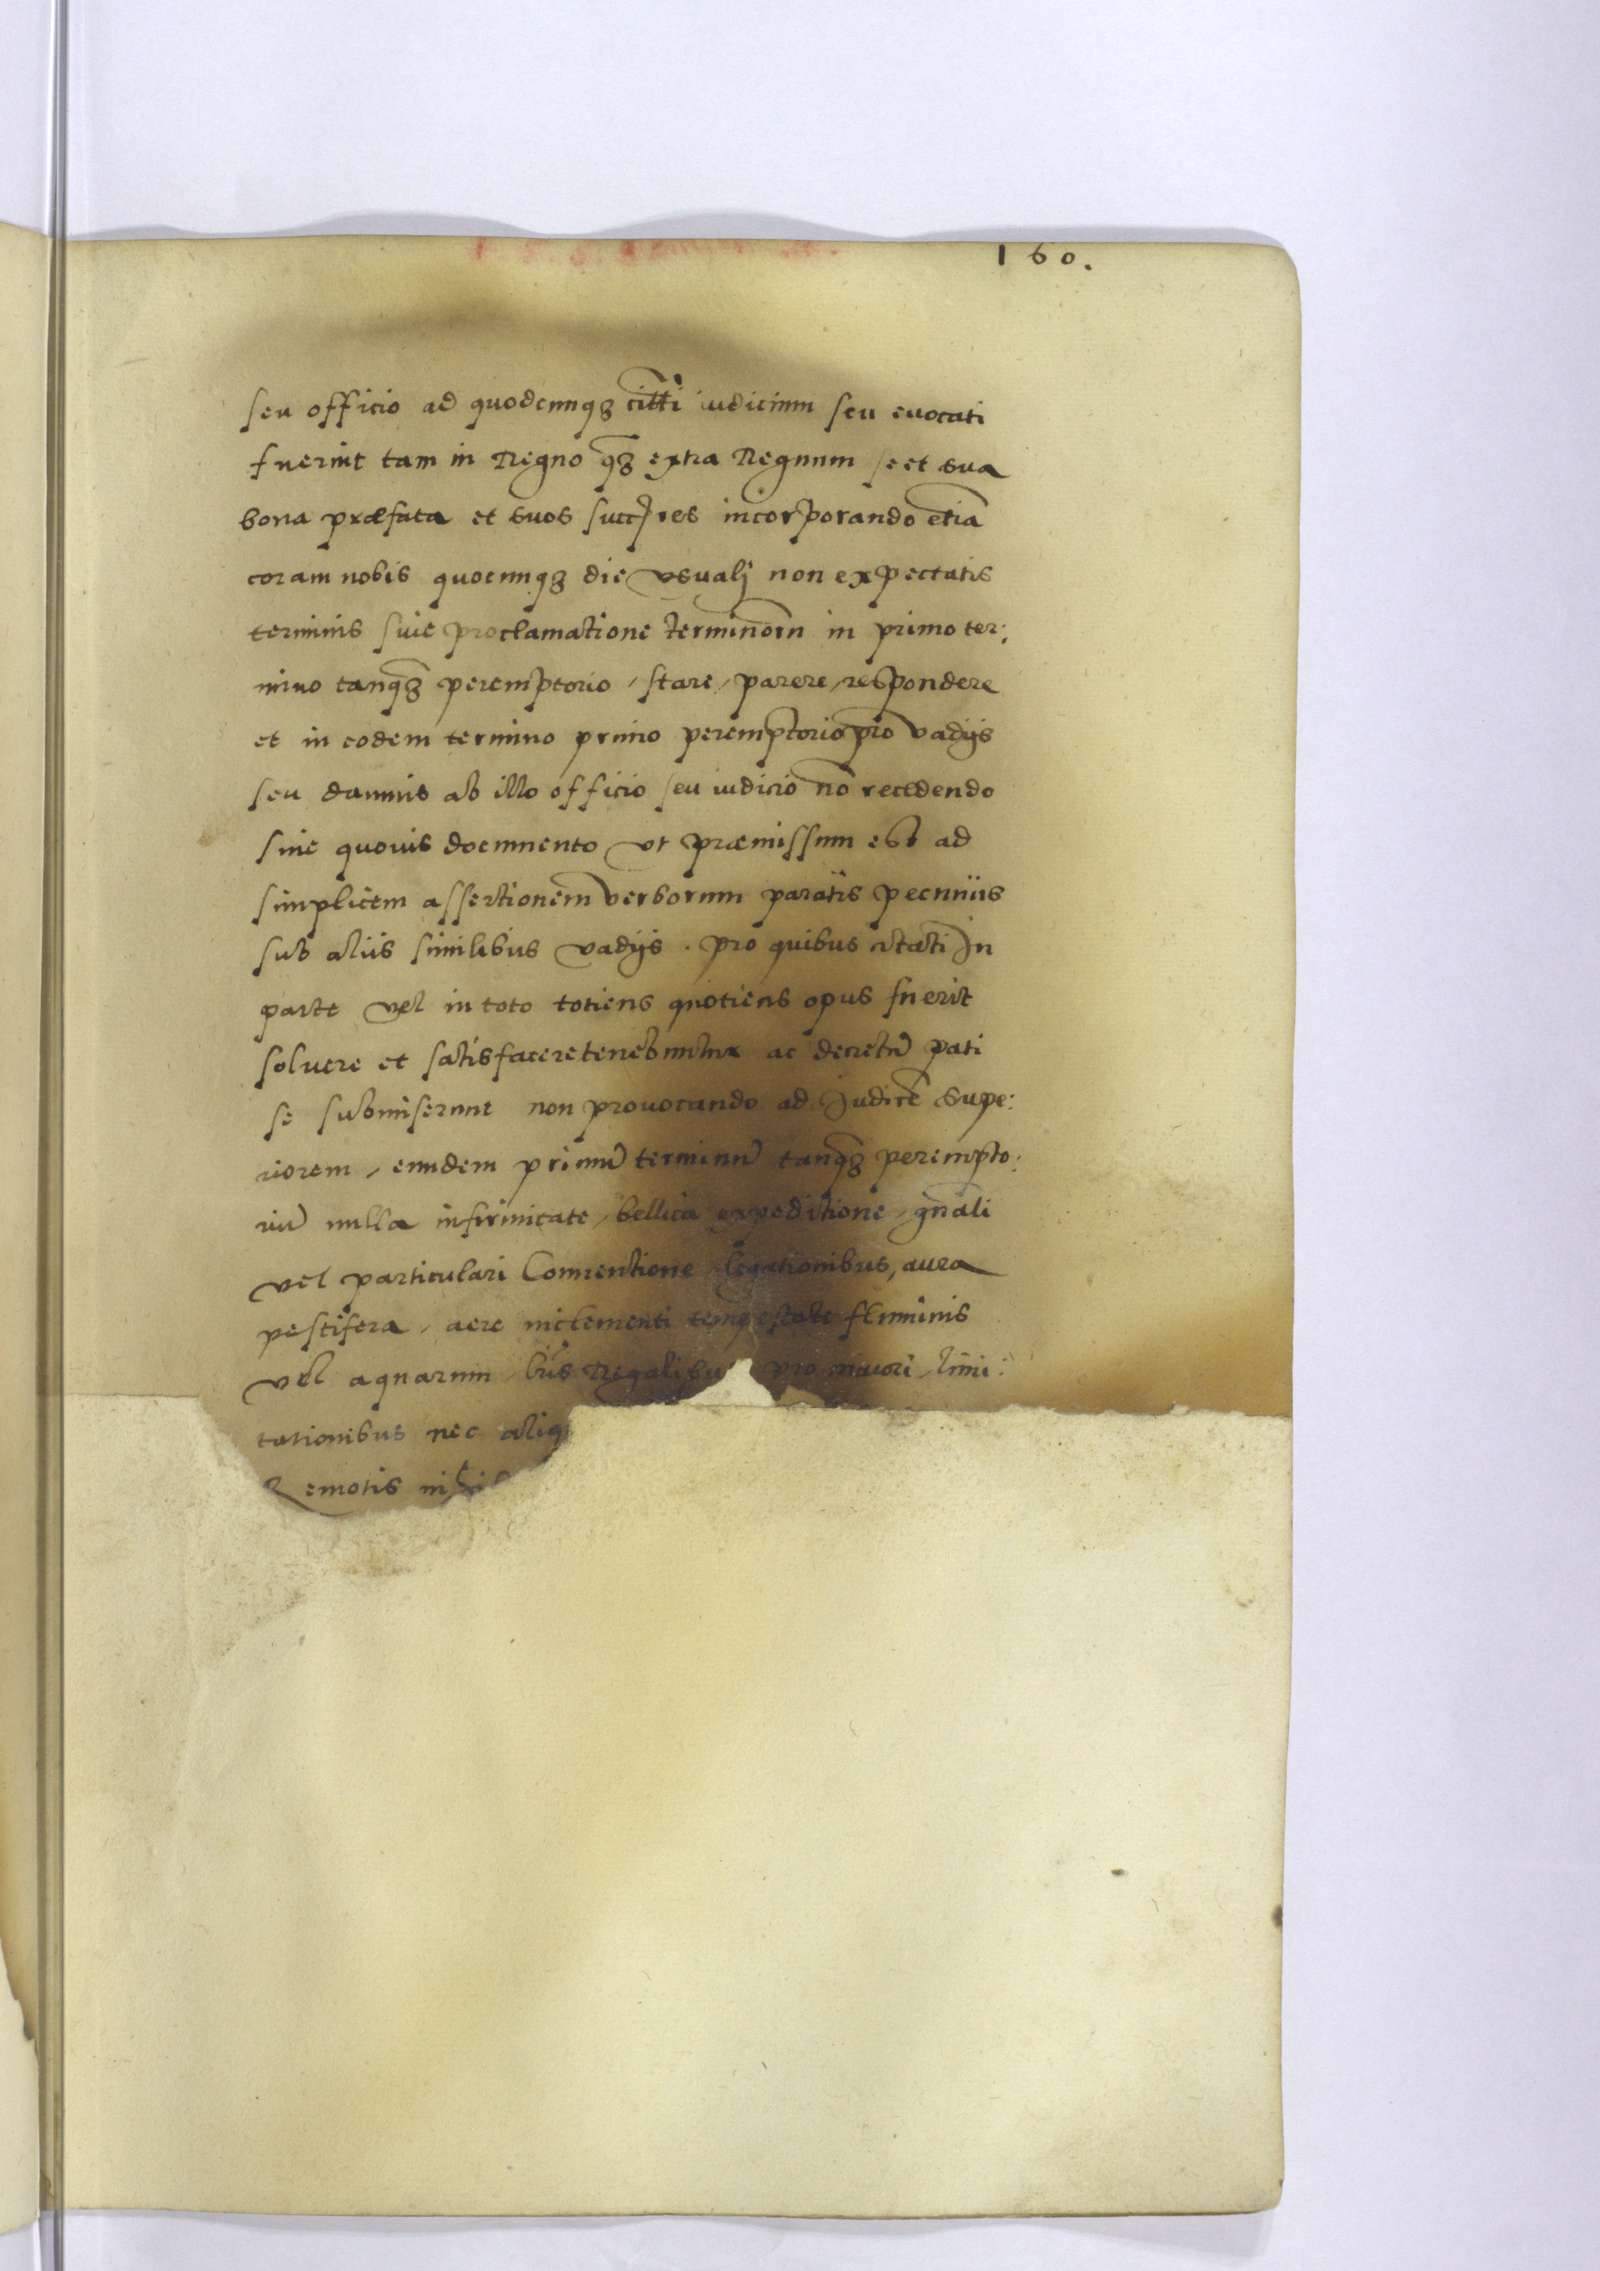 160.
seu officio ad quodcunqʒ citti iudicium seu euocati
fuerint tam in Regno qʒ extra Regnum se et sua
bona præfata et suos succres incorporando etiā
coram nobis quocunqʒ die vsualj non expectatis
terminis siue proclamatione terminorū in primo ter:
mino tanqʒ peremptorio, stare, parere, respondere
et in eodem termino primo peremptorio pro vadijs
seu damnis ab illo officio seu iudicio nō recedendo
sine quouis documento vt præmissum est ad
simplicem assertionem verborum paratis pecuniis
sub aliis similibus vadijs. pro quibus citati In
parte vel in toto totiens quotiens opus fuerit
soluere et satisfacere tenebuntur ac decretū pati
se submiserunt non prouocando ad Iudicē supe:
riorem, eundem primū terminū tanqʒ perempto:
riū nulla infirmitate, bellica expeditione, gnāli
vel particulari Conuentione, legationibus, aura
pestifera, aere inclementi tempestate fluminis
vel aquarum, lrīs Regalibu pro maiori, limi:
tationibus nec aliq
Remotis